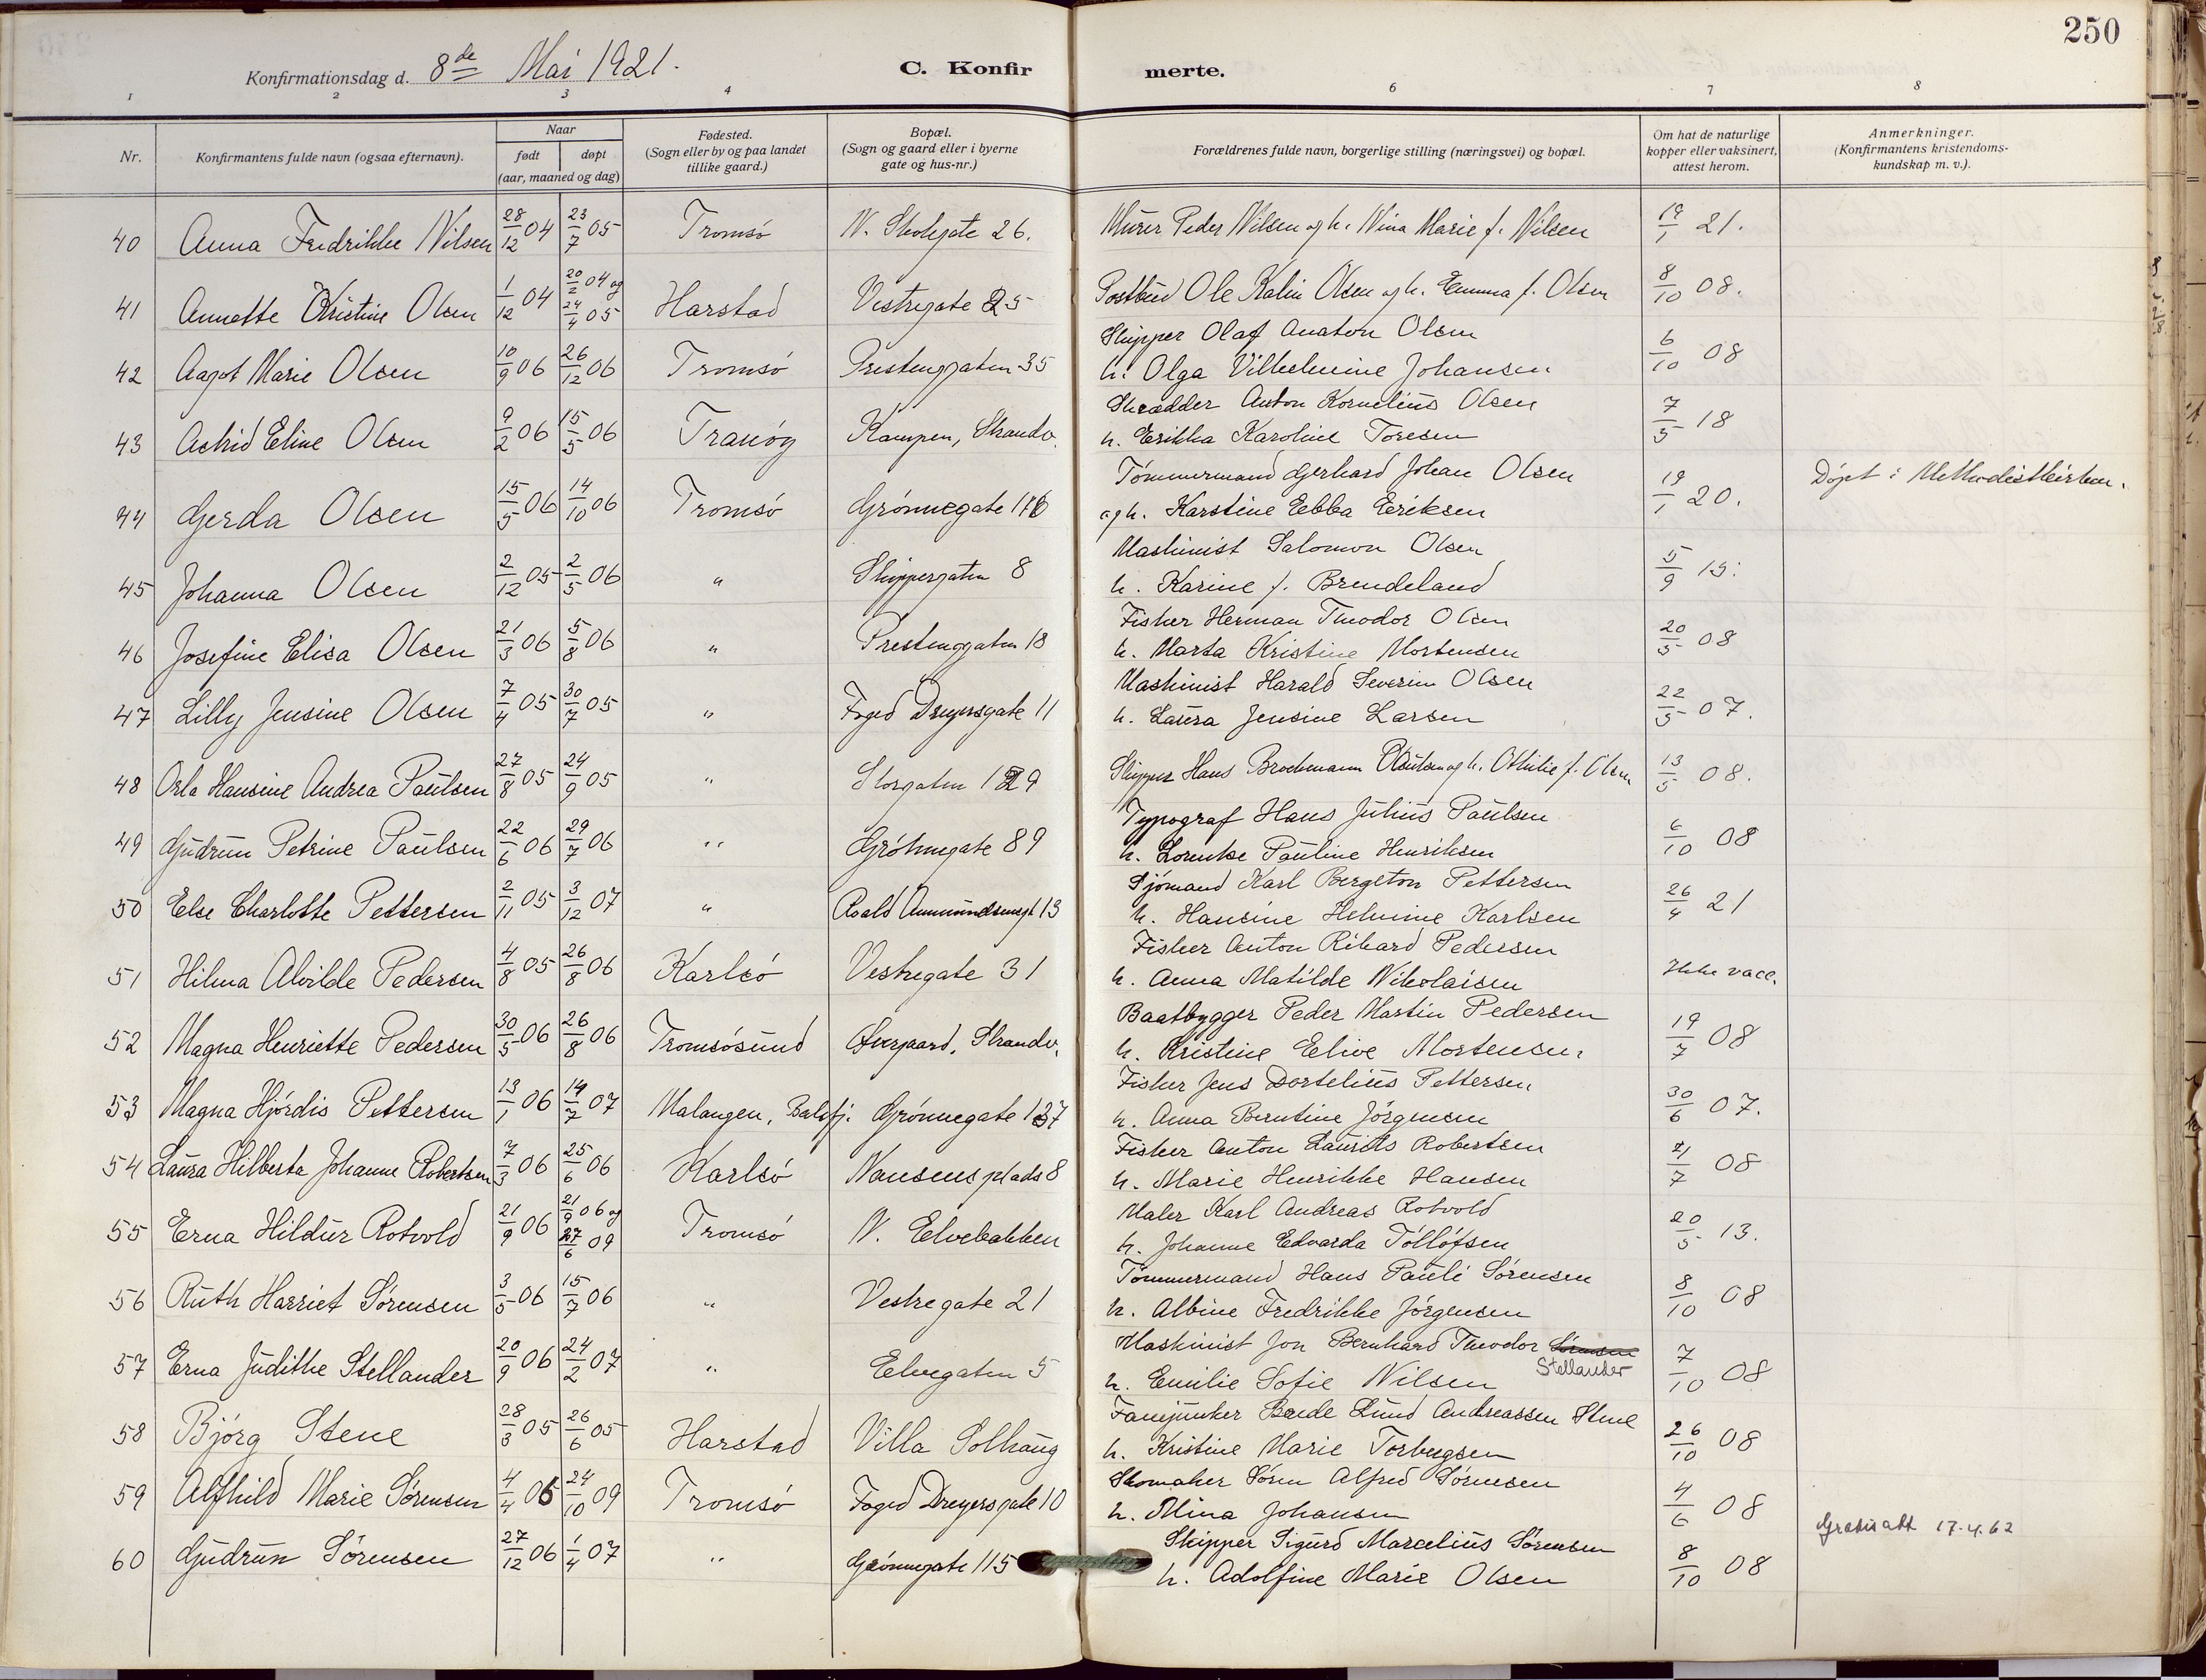 250
Konfirmationsdag d. 8de Mai 1921.
C. Konfirmerte.
1 2 3 4 6 7 8
Nr.
Konfirmantens fulde navn (ogsaa efternavn).
Naar
født døpt
(aar, maaned og dag)
Fødested.
(Sogn eller by og paa landet
tillike gaard.)
Bopæl.
(Sogn og gaard eller i byerne
gate og hus-nr.)
Forældrenes fulde navn, borgerlige stilling (næringsvei) og bopæl.
Om hat de naturlige
kopper eller vaksinert,
attest herom.
Anmerkninger.
(Konfirmantens kristendoms-
kundskap m. v.).
40 Anna Fredrikke Nilsen 28/12 04 23/7 05 Tromsö N. Skolegate 26. Murer Peder Nilsen og h. Nina Marie f. Nilsen 19/1 21.
41 Annette Kristine Olsen 1/12 04 20/2 04 og 24/4 05 Harstad Vestregate 25 Postbud Ole Kalin Olsen og h. Emma f. Olsen 8/10 08.
Skipper Olaf Anaton Olsen
42 Aagot Marie Olsen 10/9 06 26/12 06 Tromsö Prestenggaten 35 h. Olga Vilhelmine Johansen 6/10 08
Skrædder Anton Kornelius Olsen
43 Astrid Eline Olsen 9/2 06 15/5 06 Tranöy Kampen, Strandv. h. Erikka Karoline Toresen 7/5 18
Tömmermand Gerhard Johan Olsen
44 Gerda Olsen 15/5 06 14/10 06 Tromsö Grönnegate 116 og h. Karstine Ebba Eriksen 19/1 20. Döpt i Methodistkirken.
Maskinist Salomon Olsen
45 Johanna Olsen 2/12 05 2/5 06 " Skippergaten 8 h. Karine f. Brendeland 5/9 15.
Fisker Herman Theodor Olsen
46 Josefine Elisa Olsen 21/3 06 5/8 06 " Prestenggaten 18 h. Marta Kristine Mortensen 20/5 08
Maskinist Harald Severin Olsen
47 Lilly Jensine Olsen 7/4 05 30/7 05 " Foged Dreyersgate 11 h. Laura Jensine Larsen 22/5 07.
48 Orla Hansine Andrea Paulsen 27/8 05 24/9 05 " Storgaten 129 Skipper Hans Brockmann Paulsen og h. Othilie f. Olsen 13/5 08.
Typograf Hans Julius Paulsen
49 Gudrun Petrine Paulsen 22/6 06 29/7 06 " Grönnegate 89 h. Lorentse Pauline Henriksen 6/10 08
Sjömand Karl Bergeton Pettersen
50 Else Charlotte Pettersen 2/11 05 3/12 07 " Roald Ammundsensgt 13 h. Hansine Helmine Karlsen 26/4 21
Fisker Anton Rikard Pedersen
51 Hilma Alvilde Pedersen 4/8 05 26/8 06 Karlsö Vestregate 31 h. Anna Matilde Nikolaisen Ikke vacc.
Baatbygger Peder Martin Pedersen
52 Magna Henriette Pedersen 30/5 06 26/8 06 Tromsösund Övergaard, Strandv. h. Kristine Elive Mortensen 19/7 08
Fisker Jens Dortelius Pettersen
53 Magna Hjördis Pettersen 13/1 06 14/7 07 Malangen, Balsfj. Grönnegate 137 h. Anna Berntine Jörgensen 30/6 07.
Fisker Anton Laurits Robertsen
54 Laura Hilberta Johanne Robertsen 7/3 06 25/6 06 Karlsö Nansens plads 8 h. Marie Henrikke Hansen 21/7 08
Maler Karl Andreas Rotvold
55 Erna Hildur Rotvold 21/9 06 21/9 06 og 27/6 09 Tromsö N. Elvebakken h. Johanne Edvarda Tollöfsen 20/5 13.
Tömmermand Hans Pauli Sörensen
56 Ruth Harriet Sörensen 3/5 06 15/7 06 " Vestregate 21 h. Albine Fredrikke Jörgensen 8/10 08
Maskinist Jon Bernhard Theodor Sörensen
Stellander
57 Erna Judithe Stellander 20/9 06 24/2 07 " Elvegaten 5 h. Emilie Sofie Nilsen 7/10 08
Fanejunker Bende Lund Andreassen Stene
58 Björg Stene 28/3 05 26/6 05 Harstad Villa Solhaug h. Kristine Marie Torbergsen 26/10 08
Skomaker Sören Alfred Sörensen
59 Alfhild Marie Sörensen 4/4 06 24/10 09 Tromsö Foged Dreyersgate 10 h. Mina Johansen 4/6 08
Skipper Sigurd Marcelius Sörensen
60 Gudrun Sörensen 27/12 06 1/4 07 " Grönnegate 115 h. Adolfine Marie Olsen 8/10 08 Gratis att 17.4.62